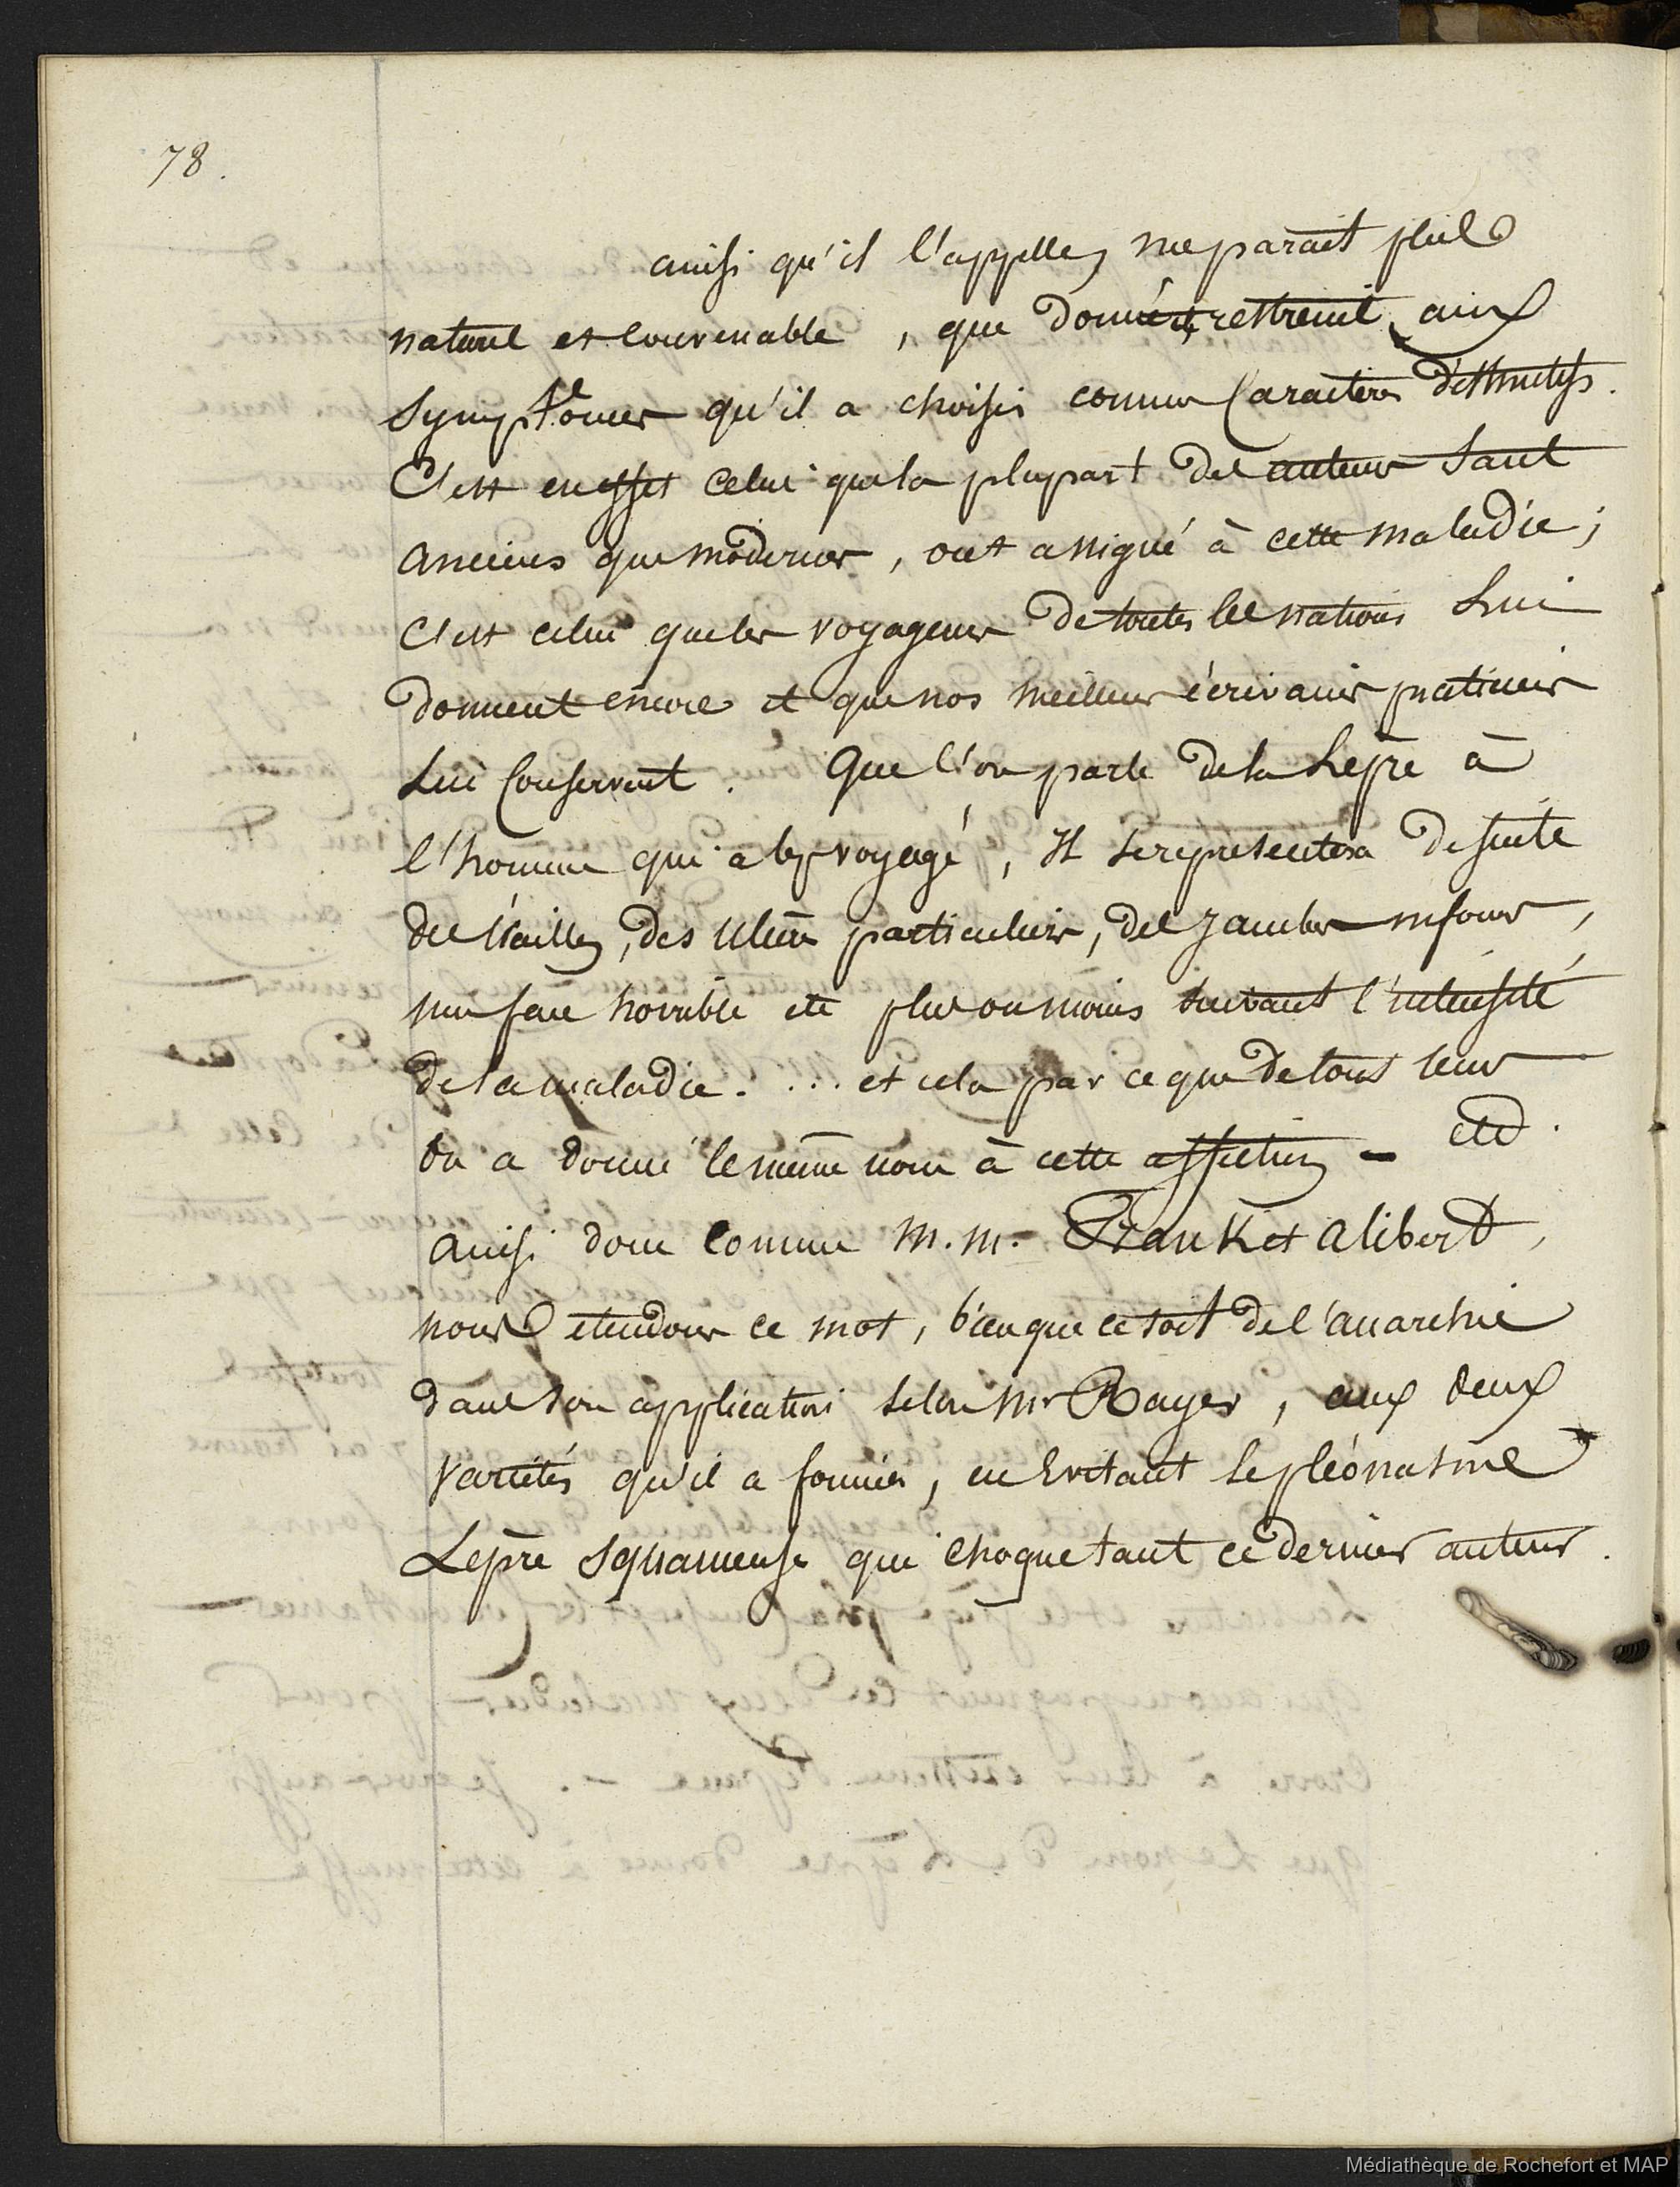 78.
ainsi qu'il l'appelle, me parait plus
naturel et convenable, que donné et restreint aux
symptômes qu'il a choisis comme Caractères distinctifs.
C'est en effet celui que la plupart des auteurs tant
anciens que modernes, ont assigné à cette maladie;
c'est celui que les voyageurs de toutes les nations lui
donnent encore et que nos meilleurs écrivains praticiens
lui Conservent. Que l'on parle de la Lèpre à
l'homme qui a voyagé, Il se représentera de suite
des écailles, des ulcères particuliers, des jambes
une face horrible etc plus ou moins suivant l'intensité
de la maladie. ... et cela par ce que de tous tems
on a donné le même nom à cette affection - etc.
ainsi donc comme M.M. Frank et Alibert,
nous étendons ce mot, bien que ce soit de l'anarchie
dans son application selon Mr Rayer, aux deux
variétés qu'il a formées, en Evitant le pléonasme
Lèpre squameuse qui choque tant ce dernier auteur.
Médiathèque de Rochefort et MAP